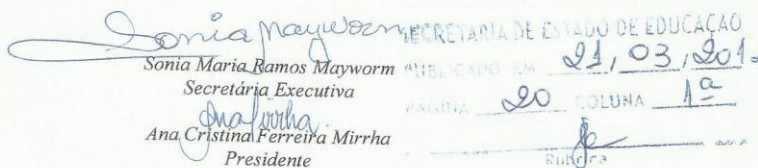 Sonia Mayworm
Sonia Maria Ramos Mayworm
Secretária Executiva
Ana Cristina Ferreira Mirrha
Presidente
SECRETARIA DE ESTADO DE EDUCAÇÃO
PUBLICADO EM 21, 03, 201
PAGINA 20 COLUNA 1ª
Rubrica